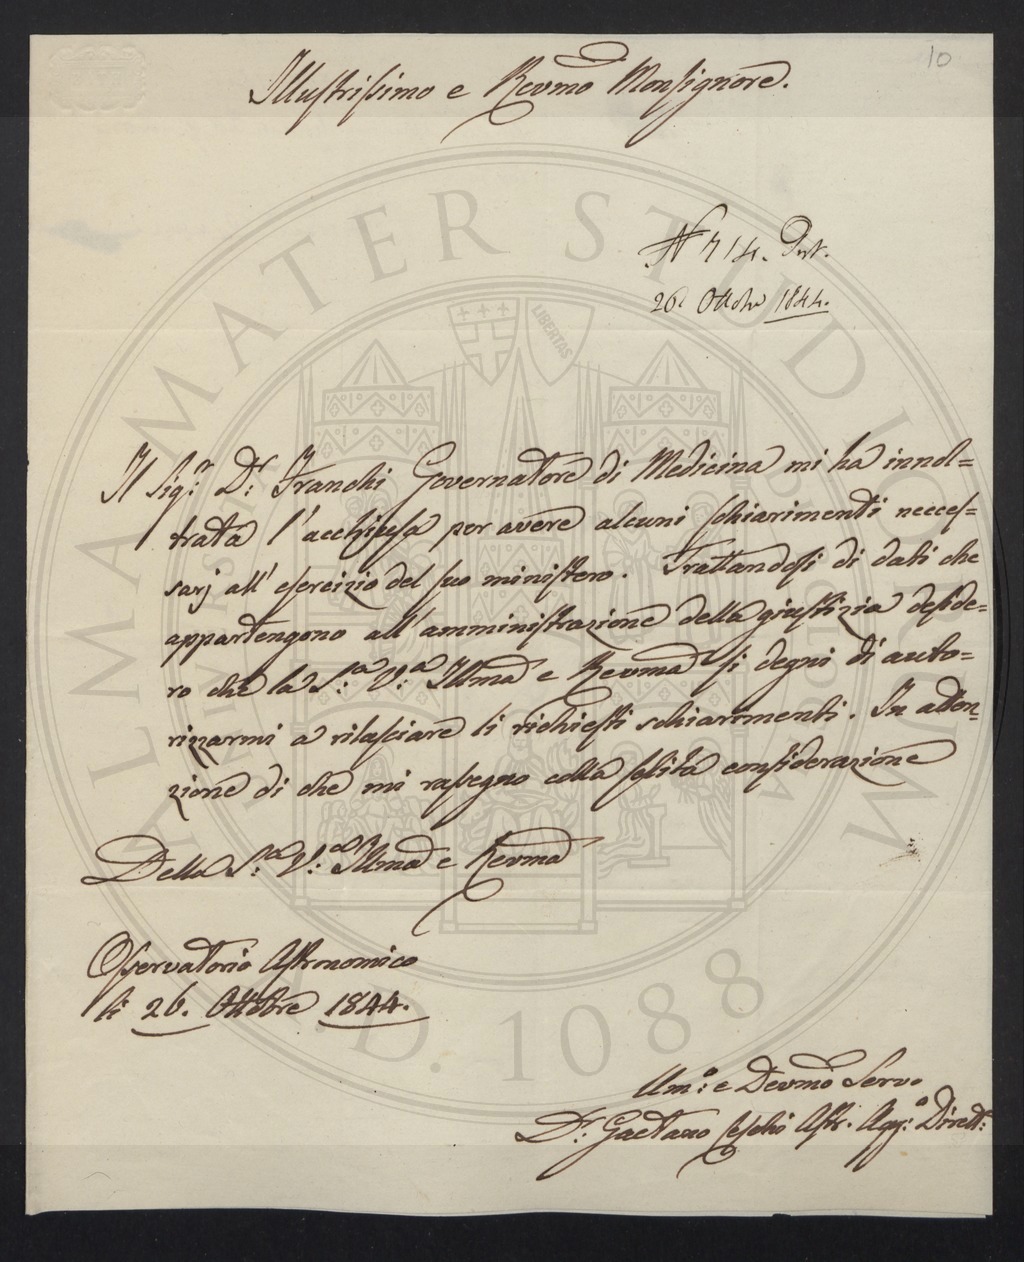 10
Illustrissimo e Revmo Monsignore.
N 714. Prot.
26 Ottobre 1844.
Il Sigr. Dr: Franchi Governatore di Medicina mi ha innol=
trata l'acchiusa per avere alcuni schiarimenti necces=
sarj all' esercizio del suo ministero. Trattandosi di dati che
appartengono all' amministrazione della giustizia deside=
ro che la S:a V:a Illma e Revma si degni di auto=
rizzarmi a rilasciare li richiesti schiarimenti. In atten=
zione di che mi rassegno colla solita considerazione
Della S:a V:a Illma e Revma
Osservatorio Astronomico
li 26. Ottobre 1844.
Um:o e Devmo Servo
Dr: Gaetano Ceschi Astr. Agg:o Dirett:
ALMA MATER STUDIORUM
A.D. 1088
LIBERTAS